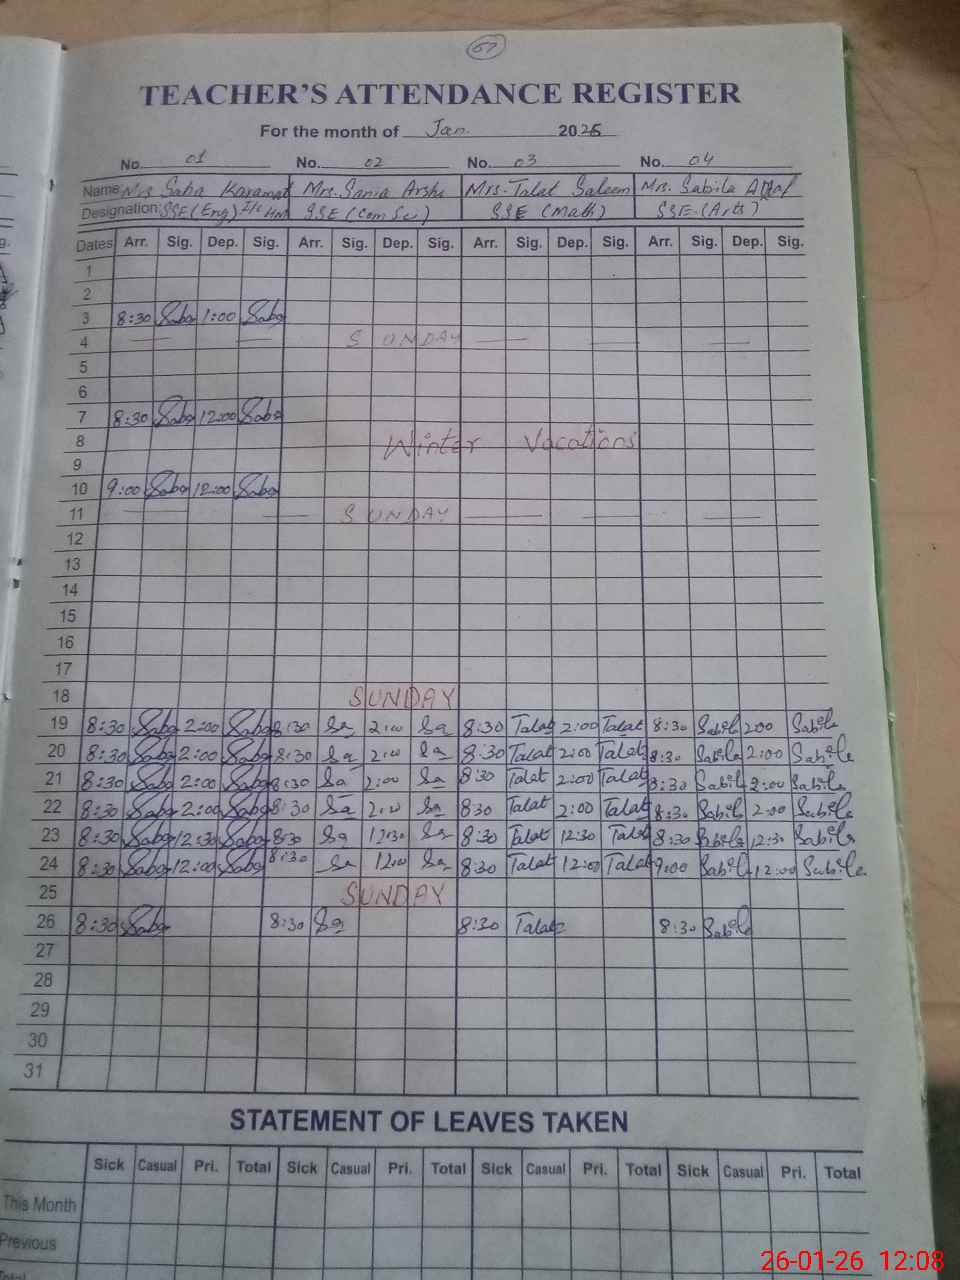 67
TEACHER'S ATTENDANCE REGISTER
For the month of Jan. 2026
No. 01 No. 02 No. 03 No. 04
Name Mrs Saba Karamat Mrs. Sania Arsha Mrs. Talat Saleem Mrs. Sabila
Designation: SSE (Eng) I/c HM SSE (Com Sci) SSE (Math) SSE (Arts)
Dates Arr. Sig. Dep. Sig. Arr. Sig. Dep. Sig. Arr. Sig. Dep. Sig. Arr. Sig. Dep. Sig.
1
2
3 8:30 Saba 1:00 Saba
4 SUNDAY
5
6
7 8:30 Saba 12:00 Saba
8 Winter Vacations
9
10 9:00 Saba 12:00 Saba
11 SUNDAY
12
13
14
15
16
17
18 SUNDAY
19 8:30 Saba 2:00 Saba 8:30 Sa 2:00 Sa 8:30 Talat 2:00 Talat 8:30 Sabila 2:00 Sabila
20 8:30 Saba 2:00 Saba 8:30 Sa 2:00 Sa 8:30 Talat 2:00 Talat 8:30 Sabila 2:00 Sabila
21 8:30 Saba 2:00 Saba 8:30 Sa 2:00 Sa 8:30 Talat 2:00 Talat 8:30 Sabila 2:00 Sabila
22 8:30 Saba 2:00 Saba 8:30 Sa 2:00 Sa 8:30 Talat 2:00 Talat 8:30 Sabila 2:00 Sabila
23 8:30 Saba 12:30 Saba 8:30 Sa 12:30 Sa 8:30 Talat 12:30 Talat 8:30 Sabila 12:30 Sabila
24 8:30 Saba 12:00 Saba 8:30 Sa 12:00 Sa 8:30 Talat 12:00 Talat 9:00 Sabila 12:00 Sabila
25 SUNDAY
26 8:30 Saba 8:30 Sa 8:30 Talat 8:30 Sabila
27
28
29
30
31
STATEMENT OF LEAVES TAKEN
Sick Casual Pri. Total Sick Casual Pri. Total Sick Casual Pri. Total Sick Casual Pri. Total
This Month
Previous
Total
26-01-26 12:08